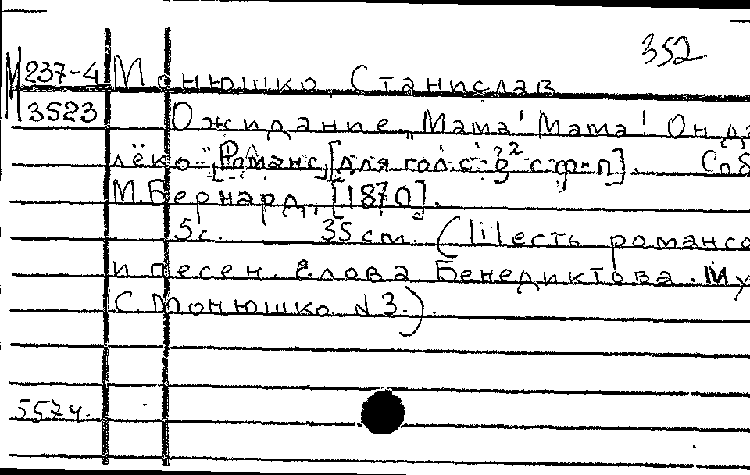 352
М 237-4 Монюшко, Станислав
3523 Ожидание „Мама! Мама! Он да
лёко". Романс, [для гол. с ф-п].
М. Бернард, [1870].
5с. 35 cm. (Шесть романсо
и песен. Слова Бенедиктова. Му
С. Монюшко. N 3.)